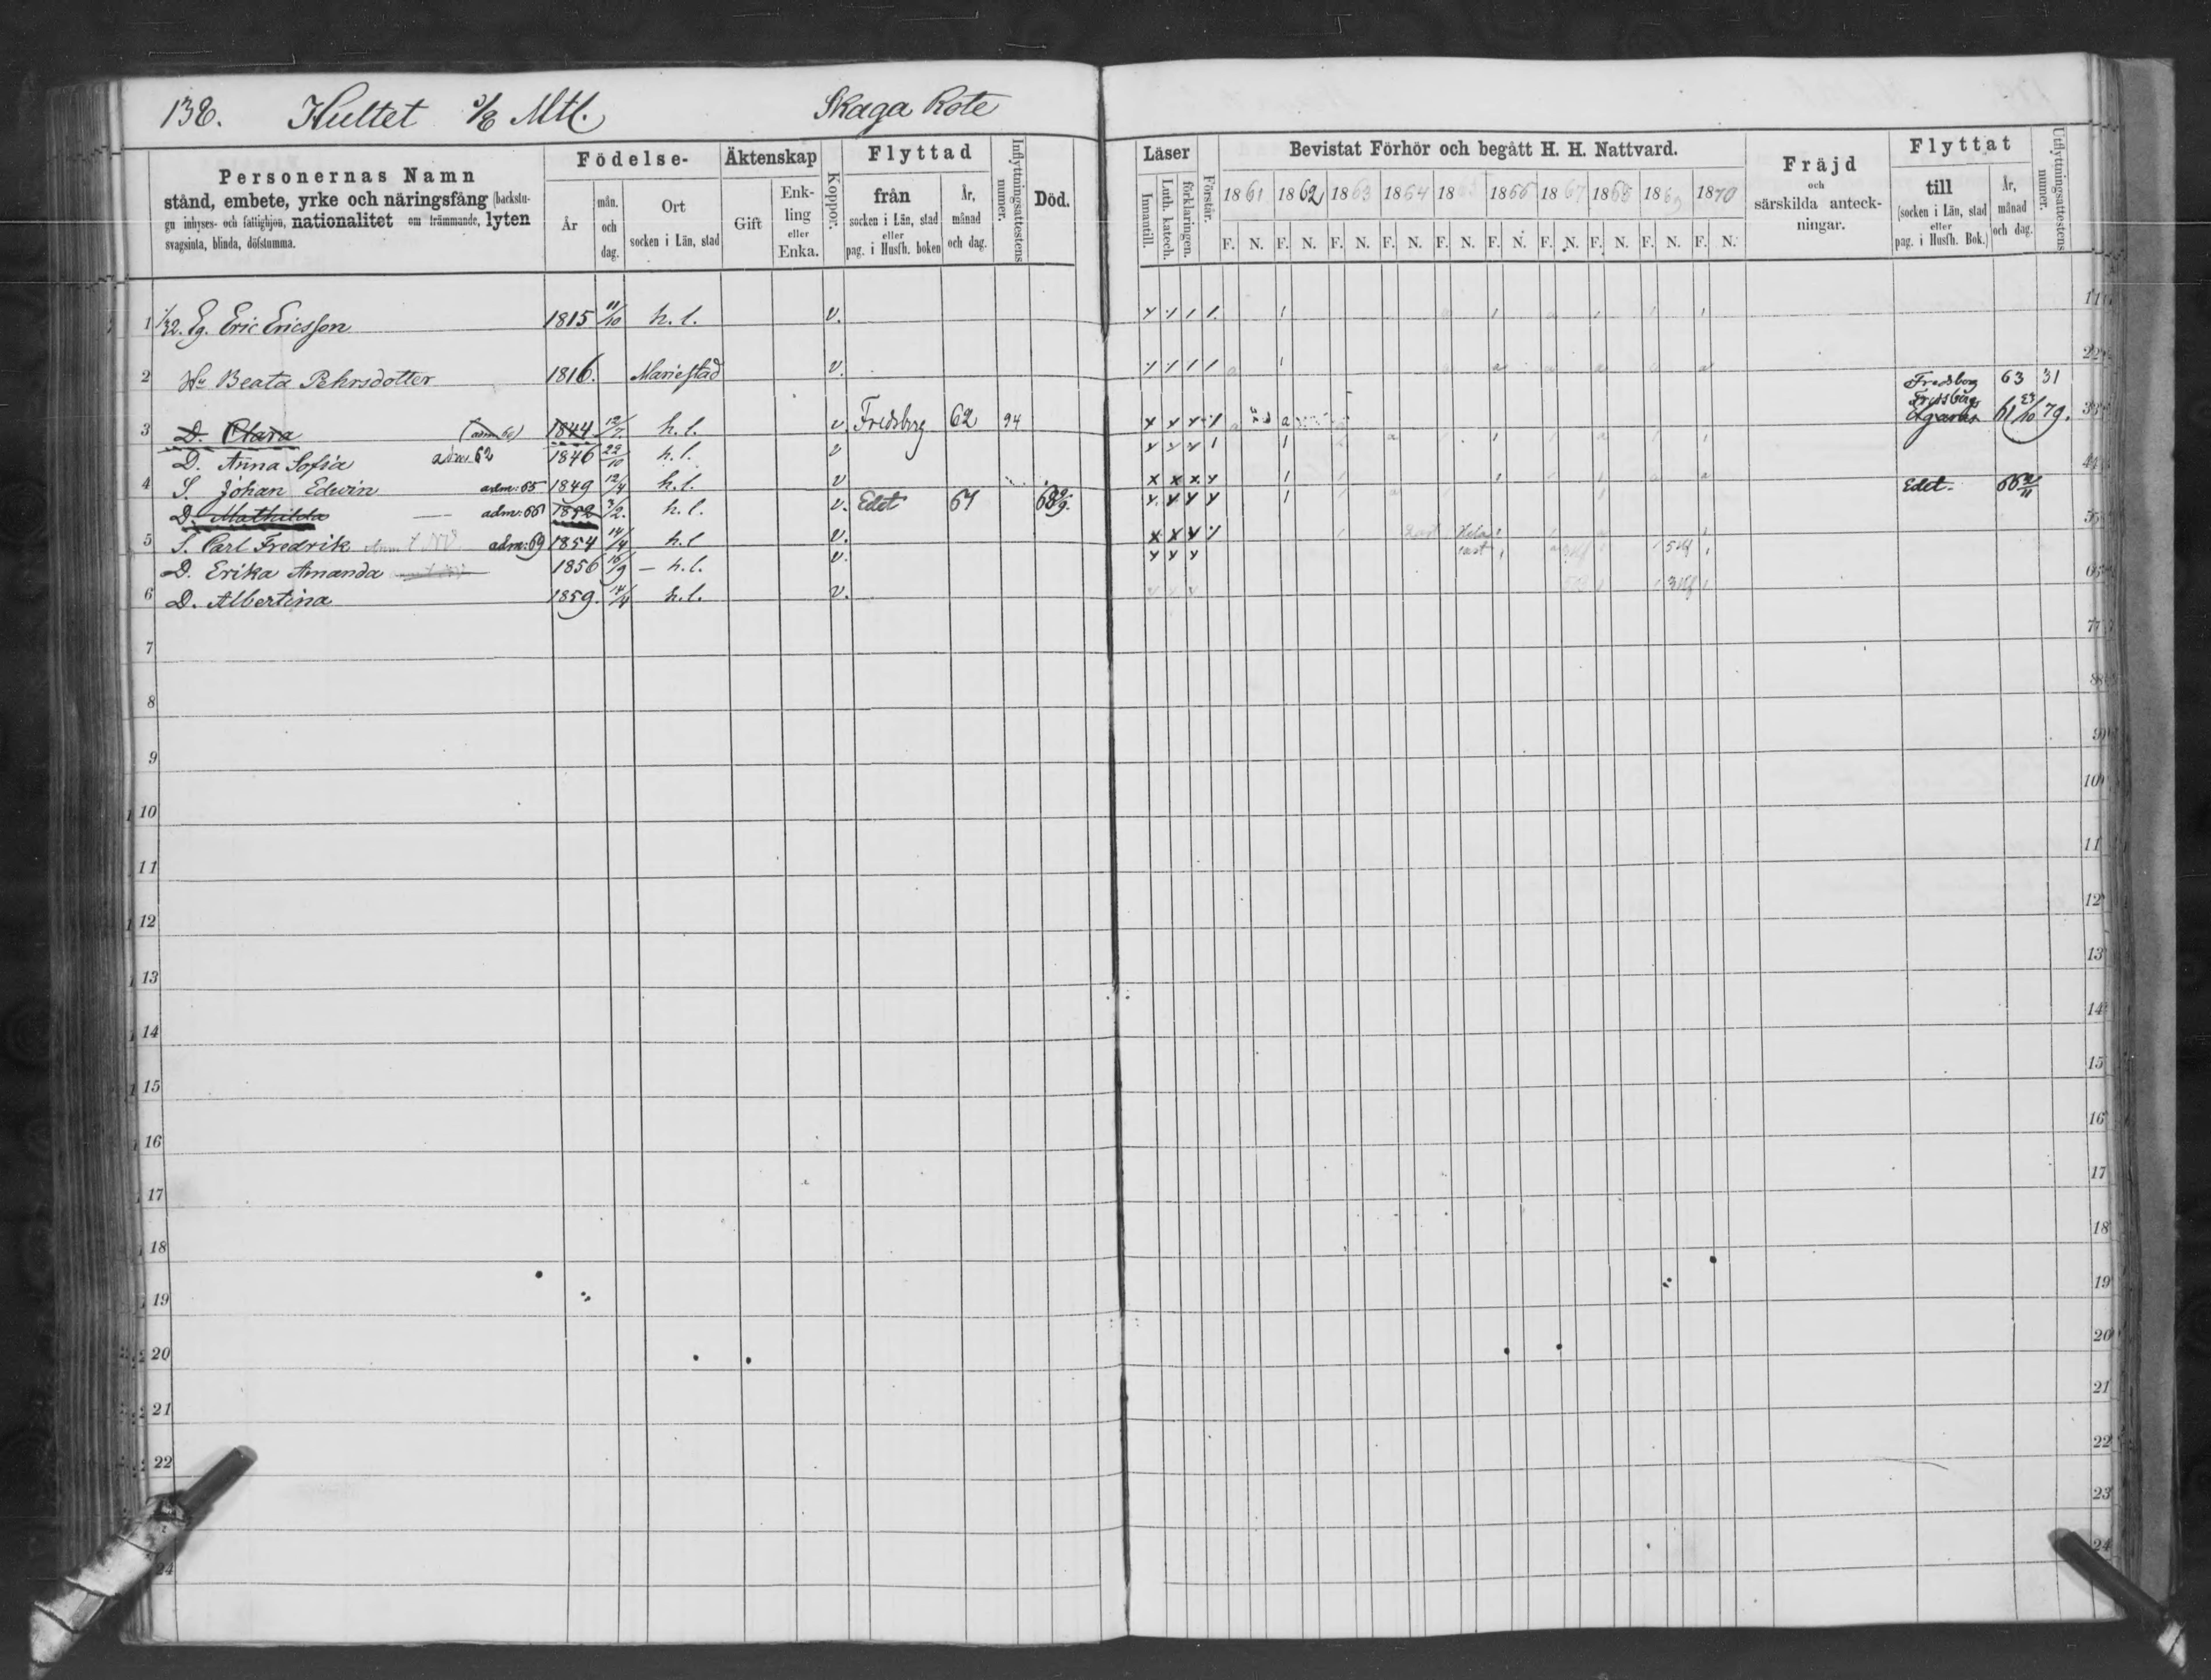 138. Hultet 3/8 Mtl. Skaga Rote
Personernas Namn
stånd, embete, yrke och näringsfång (backstu-
gu inhyses- och fattighjon, nationalitet om främmande, lyten
svagsinta, blinda, döfstumma.
Födelse-
År
mån. och dag.
Ort
socken i Län, stad
Äktenskap
Gift
Enk-
ling
eller
Enka.
Koppor.
Flyttad
från
socken i Län, stad
eller
pag. i Husfh. boken
År,
månad
och dag.
Inflyttningsattestens nummer.
Död.
Läser
Innantill.
Luth. katech.
förklaringen.
Förstår.
Bevistat Förhör och begått H. H. Nattvard.
1861 1862 1863 1864 18 1866 1867 18 18 1870
F. N. F. N. F. N. F. N. F. N. F. N. F. N. F. N. F. N. F. N.
Fräjd
och
särskilda anteck-
ningar.
Flyttat
till
(socken i Län, stad
eller
pag. i Husfh. Bok.)
År,
månad
och dag.
Utflyttningsattestens nummer.
1 1/32. Eg. Eric Ericsson 1815 11/10 h. l. v.
2 Hu Beata Pehrsdotter 1816. Mariestad v.
Fredsberg 63 31
3 D. Clara (adm. 60) 1844 12/7 h. l. v. Fredsberg 62 94 Fredsberg 61 23/10 79.
D. Anna Sofia adm. 62 1846 22/10 h. l. v
4 S. Johan Edwin adm: 65 1849 12/4 h. l. v
D. Mathilda adm: 66 1852 /2. h. l. v. Edet 67 68 Edet 66
5 S. Carl Fredrik adm: 69 1854 14/4 h. l v.
D. Erika Amanda 1856 16/9 h. l. v.
6 D. Albertina 1859. 14/4 h. l. v.
7
8
9
10
11
12
13
14
15
16
17
18
19
20
21
22
23
24